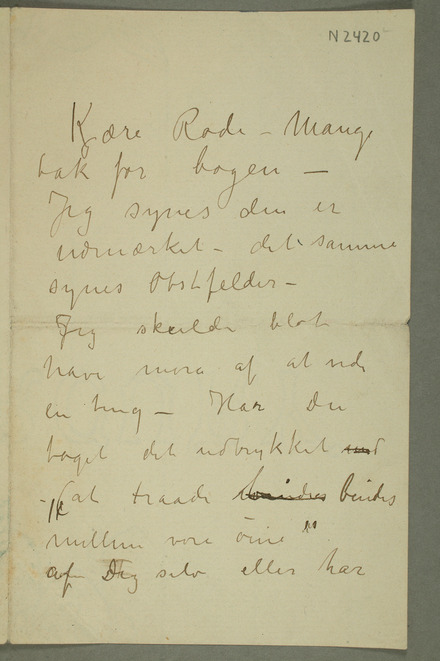 N 2420
Kjære Rode – Mange
tak for bogen –
Jeg synes den er
udmærket – det samme
synes Obstfelder –
Jeg skulde blot
have mora af at vide
en ting – Har Du
taget det udtrykket
– "at traade bindes
mellem vore öine"
af Dig selv eller har